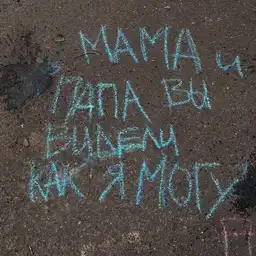 МАМА и
ПАПА ВЫ
ВИДЕЛИ
КАК Я МОГУ